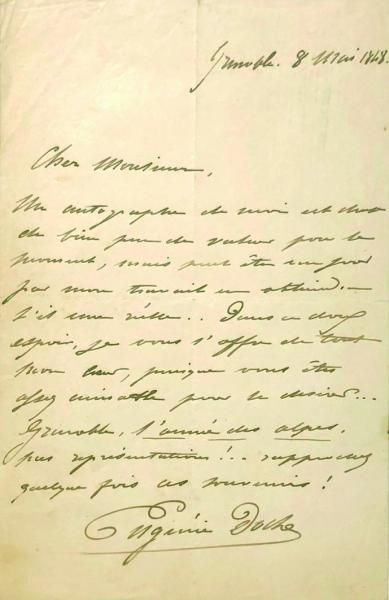 Grenoble. 8 Mai 1848.
Cher Monsieur,
Un autographe de moi est
de bien peu de valeur pour le
moment, mais peut être un jour
par mon travail en
t'il une réelle.. Dans ce doux
espoir, je vous l'offre de tout
mon cœur, puisque vous êtes
assez aimable pour le désirer...
Grenoble, l'armée des alpes,
nos représentations!.. rappelez
quelque fois ces souvenirs!
Eugénie Doche